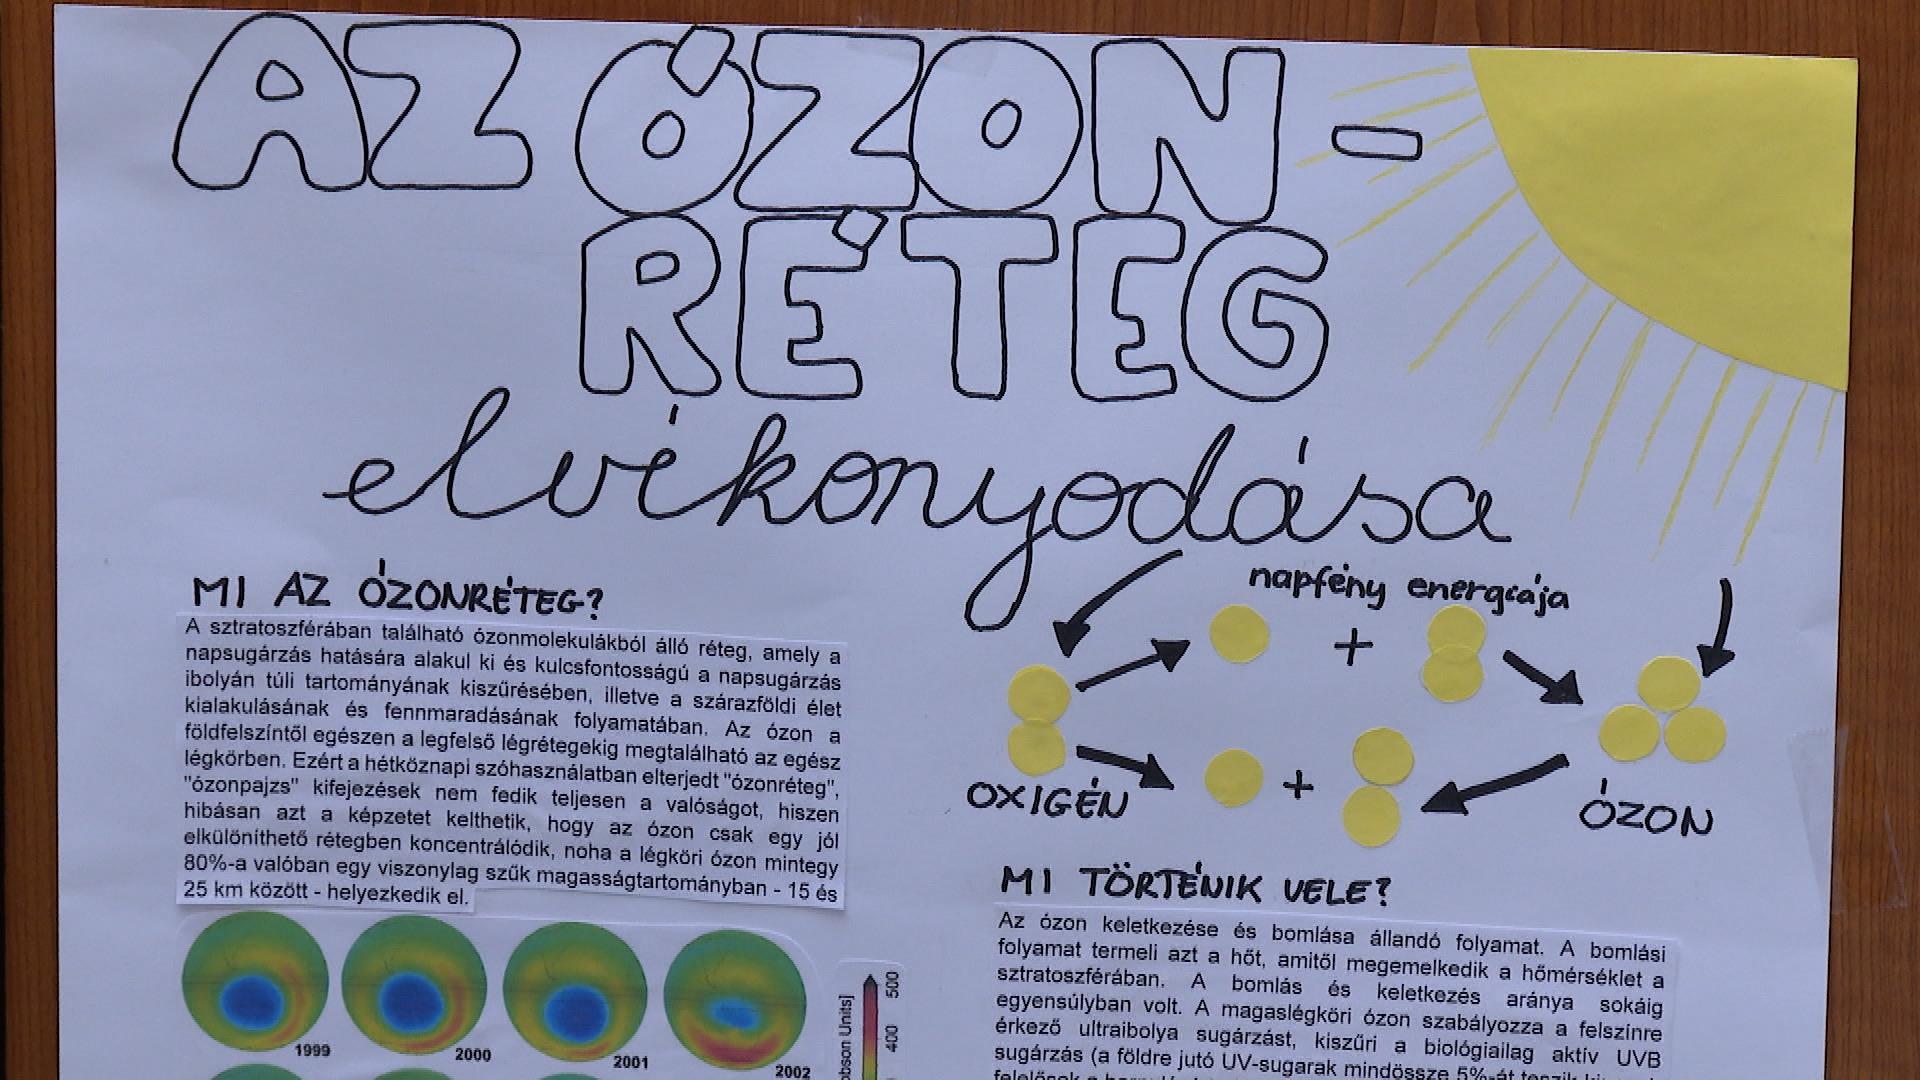 AZ ÓZON-
RÉTEG
elvékonyodása
MI AZ ÓZONRÉTEG?
A sztratoszférában található ózonmolekulákból álló réteg, amely a
napsugárzás hatására alakul ki és kulcsfontosságú a napsugárzás
ibolyán túli tartományának kiszűrésében, illetve a szárazföldi élet
kialakulásának és fennmaradásának folyamatában. Az ózon a
földfelszíntől egészen a legfelső légrétegekig megtalálható az egész
légkörben. Ezért a hétköznapi szóhasználatban elterjedt "ózonréteg",
"ózonpajzs" kifejezések nem fedik teljesen a valóságot, hiszen
hibásan azt a képzetet kelthetik, hogy az ózon csak egy jól
elkülöníthető rétegben koncentrálódik, noha a légköri ózon mintegy
80%-a valóban egy viszonylag szűk magasságtartományban - 15 és
25 km között - helyezkedik el.
1999
2000
2001
2002
500
400
obson Units]
napfény energiája
+
+
OXIGÉN
ÓZON
MI TÖRTÉNIK VELE?
Az ózon keletkezése és bomlása állandó folyamat. A bomlási
folyamat termeli azt a hőt, amitől megemelkedik a hőmérséklet a
sztratoszférában. A bomlás és keletkezés aránya sokáig
egyensúlyban volt. A magaslégköri ózon szabályozza a felszínre
érkező ultraibolya sugárzást, kiszűri a biológiailag aktív UVB
sugárzás (a földre jutó UV-sugarak mindössze 5%-át teszik